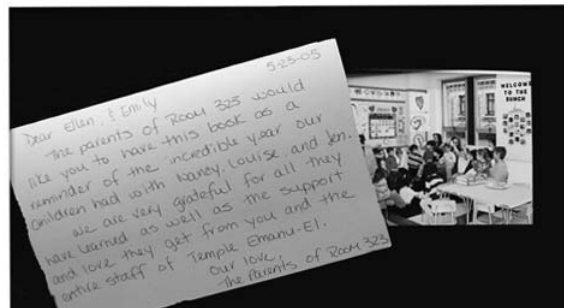 5-23-05
Dear Ellen & Emily
The parents of Room 323 would
like you to have this book as a
reminder of the incredible year our
children had with Nancy, Louise, and Jen.
We are very grateful for all they
have learned as well as the support
and love they get from you and the
entire staff of Temple Emanu-El.
Our love,
The Parents of Room 323
WELCOME
TO THE
BUNCH